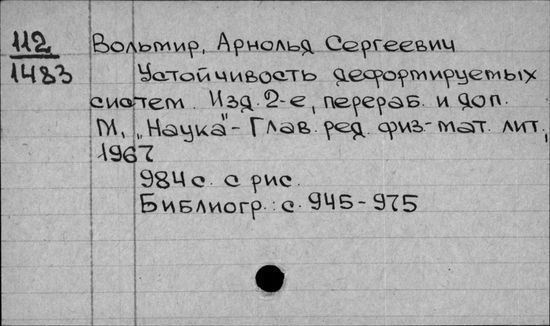 112 Вольмир, Арнольд Сергеевич
1483 Устойчивость деформируемых
систем. Изд. 2-е, перераб. и доп.
М, „Наука" - Глав. ред. физ-мат. лит.,
1967
984 с. с рис.
Библиогр.: с. 945-975